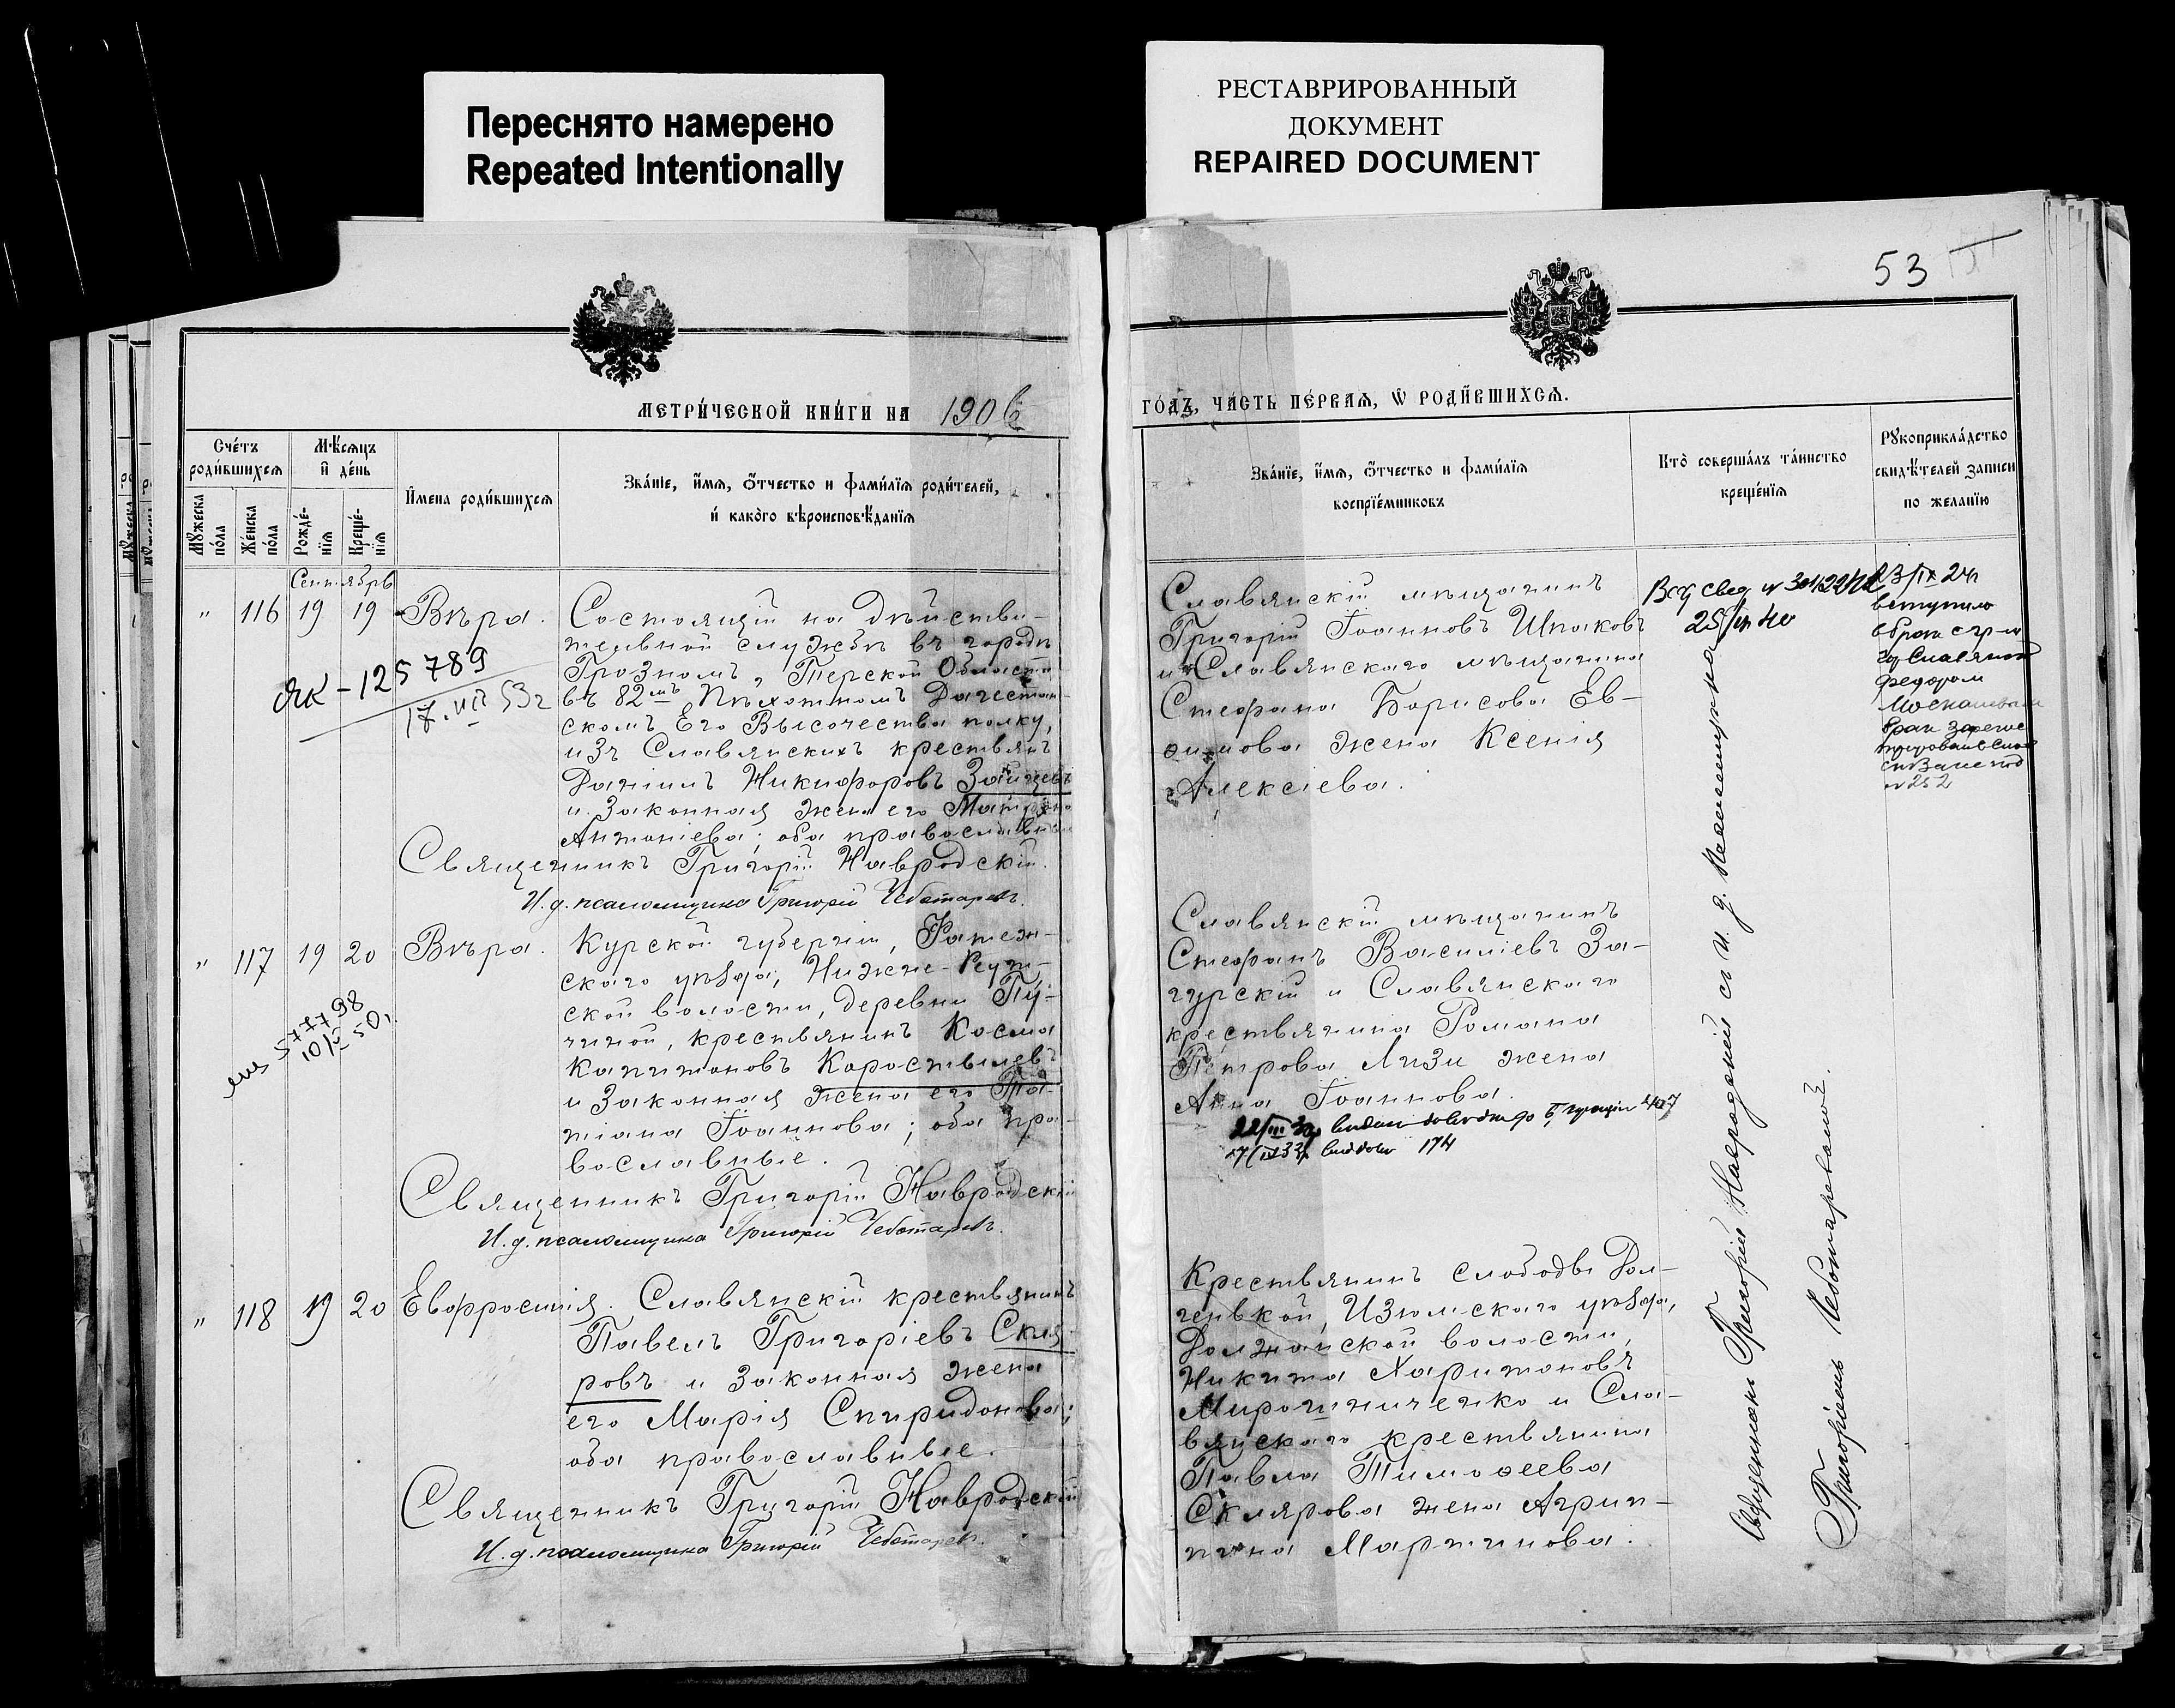 Переснято намерено
Repeated Intentionally
РЕСТАВРИРОВАННЫЙ
ДОКУМЕНТ
REPAIRED DOCUMENT
53
МЕТРИ́ЧЕСКОЙ КНИ́ГИ НА 1906
ГО́ДЪ, ЧА́СТЬ ПЕ́РВАѦ, Ѡ РОДИ́ВШИХСѦ.
Сче́тъ
роди́вшихсѧ
Мѣ́сѧцъ
и҆ де́нь
Мꙋ́жеска
по́ла
Же́нска
по́ла
Рожде́-
нїѧ
Креще́-
нїѧ
И҆мена роди́вшихсѧ
Зва́нїе, и҆́мѧ, ѻ҆́тчество и фами́лїѧ роди́телей,
и҆ како́гѡ вѣроисповѣ́данїѧ
Зва́нїе, и҆́мѧ, ѻ҆́тчество и фами́лїѧ
воспрїе́мниковъ
Кто̀ соверша́лъ та́инство
креще́нїѧ
Рꙋкоприкла́дство
свидѣ́телей записи
по жела́нїю
Сентябрь
" 116 19 19 Вѣра.
Состоящій на дѣйстви-
тельной службѣ въ городѣ
Грозномъ, Терской Области
въ 82мъ Пѣхотномъ Дагестан-
скомъ Его Высочества полку,
изъ Славянскихъ крестьянъ
Даніилъ Никифоровъ Зайцевъ
и законная жена его Матрона
Антоніева; оба православные
ЯК-125789
17.VII 53г
Священникъ Григорій Навродскій.
И.д. псаломщика Григорій Чеботаревъ.
Славянскій мѣщанинъ
Григорій Іоанновъ Шпаковъ
и Славянскаго мѣщанина
Стефана Борисова Ев-
фимова жена Ксенія
Алексіева.
вступила
в брак с гр-м
Федором
№ 252
" 117 19 20 Вѣра.
Курской губерніи, Фатеж-
скаго уѣзда, Нижне-Реут-
ской волости, деревни Пу-
чиной, крестьянинъ Косма
Капитоновъ Коростылевъ
и законная жена его Та-
тіана Іоаннова; оба пра-
вославные.
577798
Священникъ Григорій Навродскій
И.д. псаломщика Григорій Чеботаревъ.
Славянскій мѣщанинъ
Стефанъ Василіевъ За-
гурскій и Славянскаго
крестьянина Романа
Петрова Лизи жена
Анна Іоаннова.
" 118 19 20 Евфросинія.
Славянскій крестьянинъ
Павелъ Григоріевъ Скля-
ровъ и законная жена
его Марія Спиридонова;
оба православные.
Священникъ Григорій Навродскій
И.д. псаломщика Григорій Чеботаревъ.
Крестьянинъ слободы Дол-
генькой, Изюмскаго уѣзда,
Должанской волости,
Никита Харитоновъ
Мирошниченко и Сла-
вянскаго крестьянина
Павла Тимофеева
Склярова жена Агрип-
пина Мартинова.
Священникъ Григорій Навродскій съ и. д. псаломщика
Григоріемъ Чеботаревымъ.